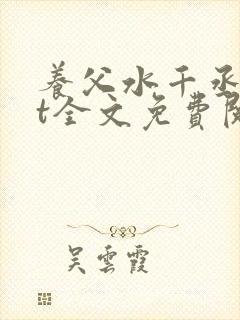 養父水千丞
t全文免費閱
吳雲霞